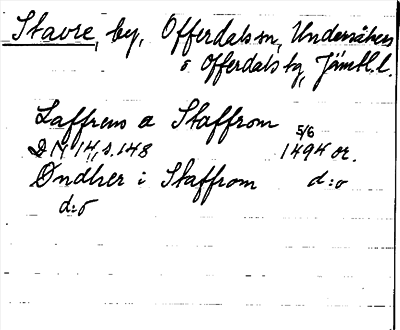 Stavre, by, Offerdals sn, Undersåkers
o Offerdals tg, Jämtl. l.
Laffrens a Staffrom 5/6
DN 14, s. 148 1494 or.
Øndher i Staffrom d:o
d:o